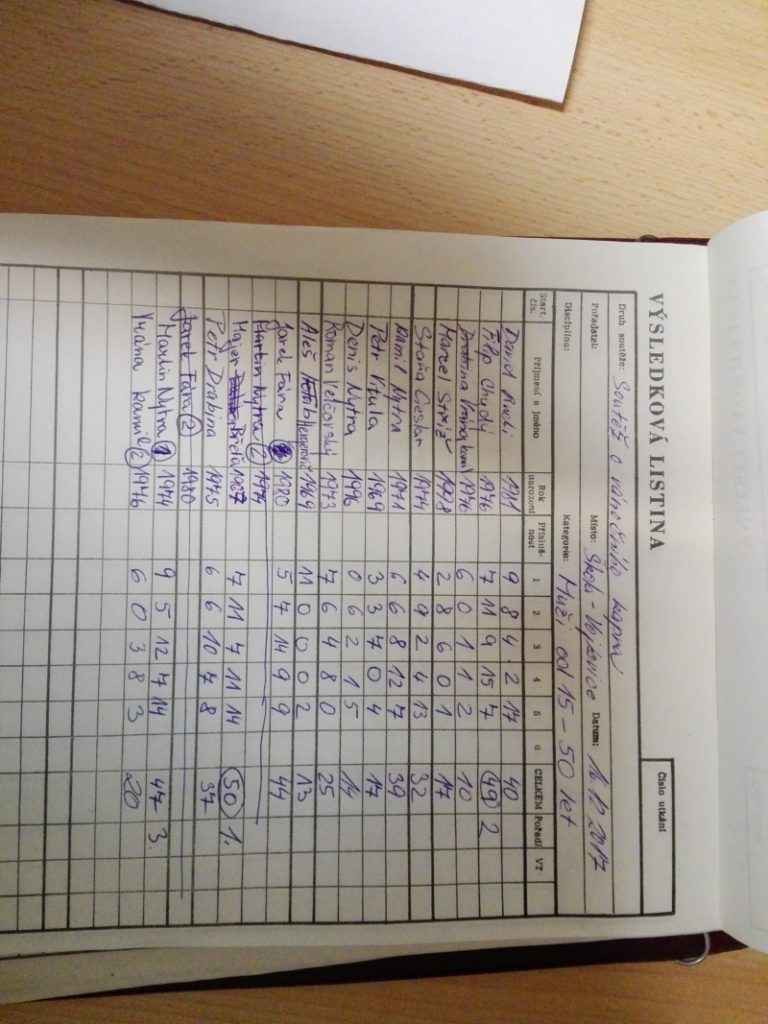 VÝSLEDKOVÁ LISTINA
Číslo utkání
Druh soutěže: Soutěž o vánočního kapra
Pořadatel: Místo: Škola - Datum: 16 12 2017
Disciplina: Kategorie: Muži od 15 - 50 let
Start. čís. Příjmení a jméno Rok narození Přísluš- nost 1 2 3 4 5 6 CELKEM Pořadí VT
David 1981 9 8 4 2 17 40
Filip Chudý 1976 7 11 9 15 7 49 2
1976 6 0 1 1 2 10
Marcel Stříž 1978 2 8 6 0 1 17
Staňa Cieslar 1974 4 9 2 4 13 32
Kamil Nytra 1971 6 6 8 12 7 39
Petr Vitula 1969 3 3 7 0 4 17
Denis Nytra 1996 0 6 2 1 5 14
Roman Velčovský 1973 7 6 4 8 0 25
Aleš 1969 11 0 0 0 2 13
Jarek Fána 1980 5 7 14 9 9 44
Martin Nytra 2 1974
Majer Břeťa 1987 7 11 7 11 14 50 1.
Petr Drabina 1975 6 6 10 7 8 37
Jarek Fána 2 1980
Martin Nytra 1974 9 5 12 7 14 47 3.
Vrána Kamil 2 1976 6 0 3 8 3 20